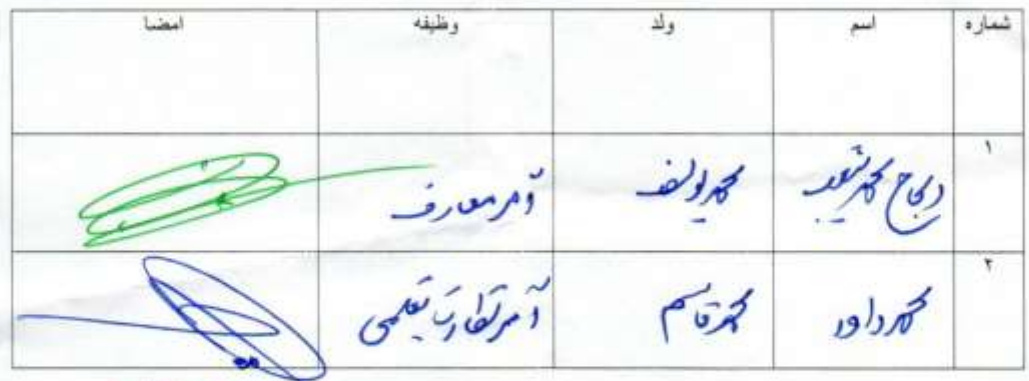 شماره اسم ولد وظیفه امضا
۱ الحاج محمد شعیب محمد یوسف آمر معارف
۲ محمد داود محمد قاسم آمر نظارت تعلیمی